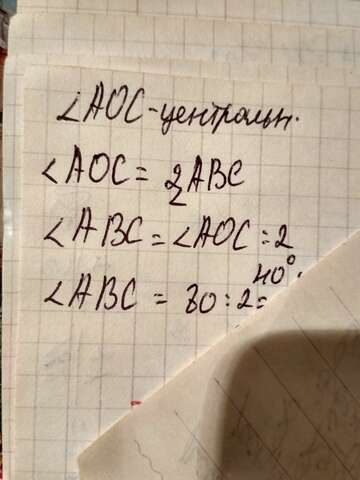 ∠AOC-центральн.
∠AOC = 2∠ABC
∠ABC = ∠AOC : 2
∠ABC = 80 : 2 = 40°